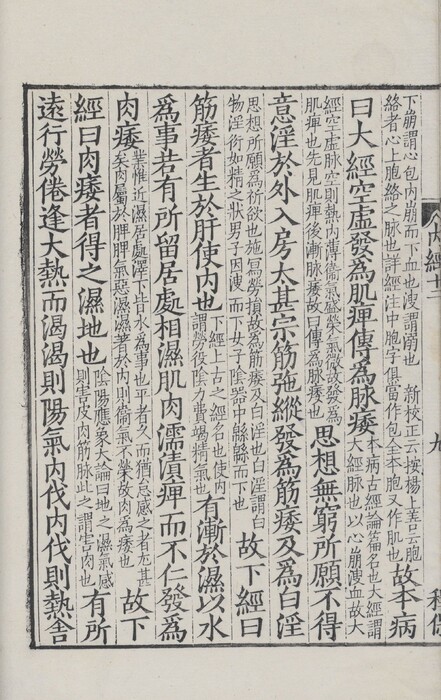 內經十二
九
下崩謂心包內崩而下血也溲謂溺也　新校正云按楊上善云胞
絡者心上胞絡之脉也詳經注中胞字俱當作包全本胞又作肌也
故本病
曰大經空虛發為肌痺傳為脉痿
本病古經論篇名也大經謂
大經脉也以心崩溲血故大
經空虛脉空則熱內薄衛氣盛榮氣微故發為
肌痺也先見肌痺後漸脉痿故曰傳為脉痿也
思想無窮所願不得
意淫於外入房太甚宗筋弛縱發為筋痿及為白淫
思想所願為祈欲也施寫勞損故為筋痿及白淫也白淫謂白
物淫衍如精之狀男子因溲而下女子陰器中緜緜而下也
故下經曰
筋痿者生於肝使內也
下經上古之經名也使內
謂勞役陰力費竭精氣也
有漸於濕以水
為事若有所留居處相濕肌肉濡漬痺而不仁發為
肉痿
業惟近濕居處澤下皆水為事也平者久而猶怠感之者尤甚
矣肉屬於脾脾氣惡濕濕著於內則衛氣不榮故肉為痿也
故下
經曰肉痿者得之濕地也
陰陽應象大論曰地之濕氣感
則害皮肉筋脉此之謂害肉也
有所
遠行勞倦逢大熱而渴渴則陽氣內伐內伐則熱舍